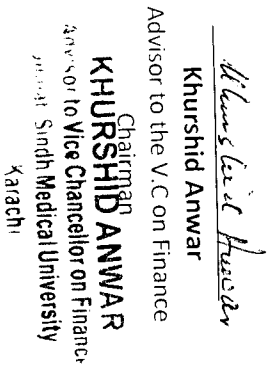 Khurshid Anwar
Khurshid Anwar
Advisor to the V.C on Finance
Chairman
KHURSHID ANWAR
Advisor to Vice Chancellor on Finance
Sindh Medical University
Karachi